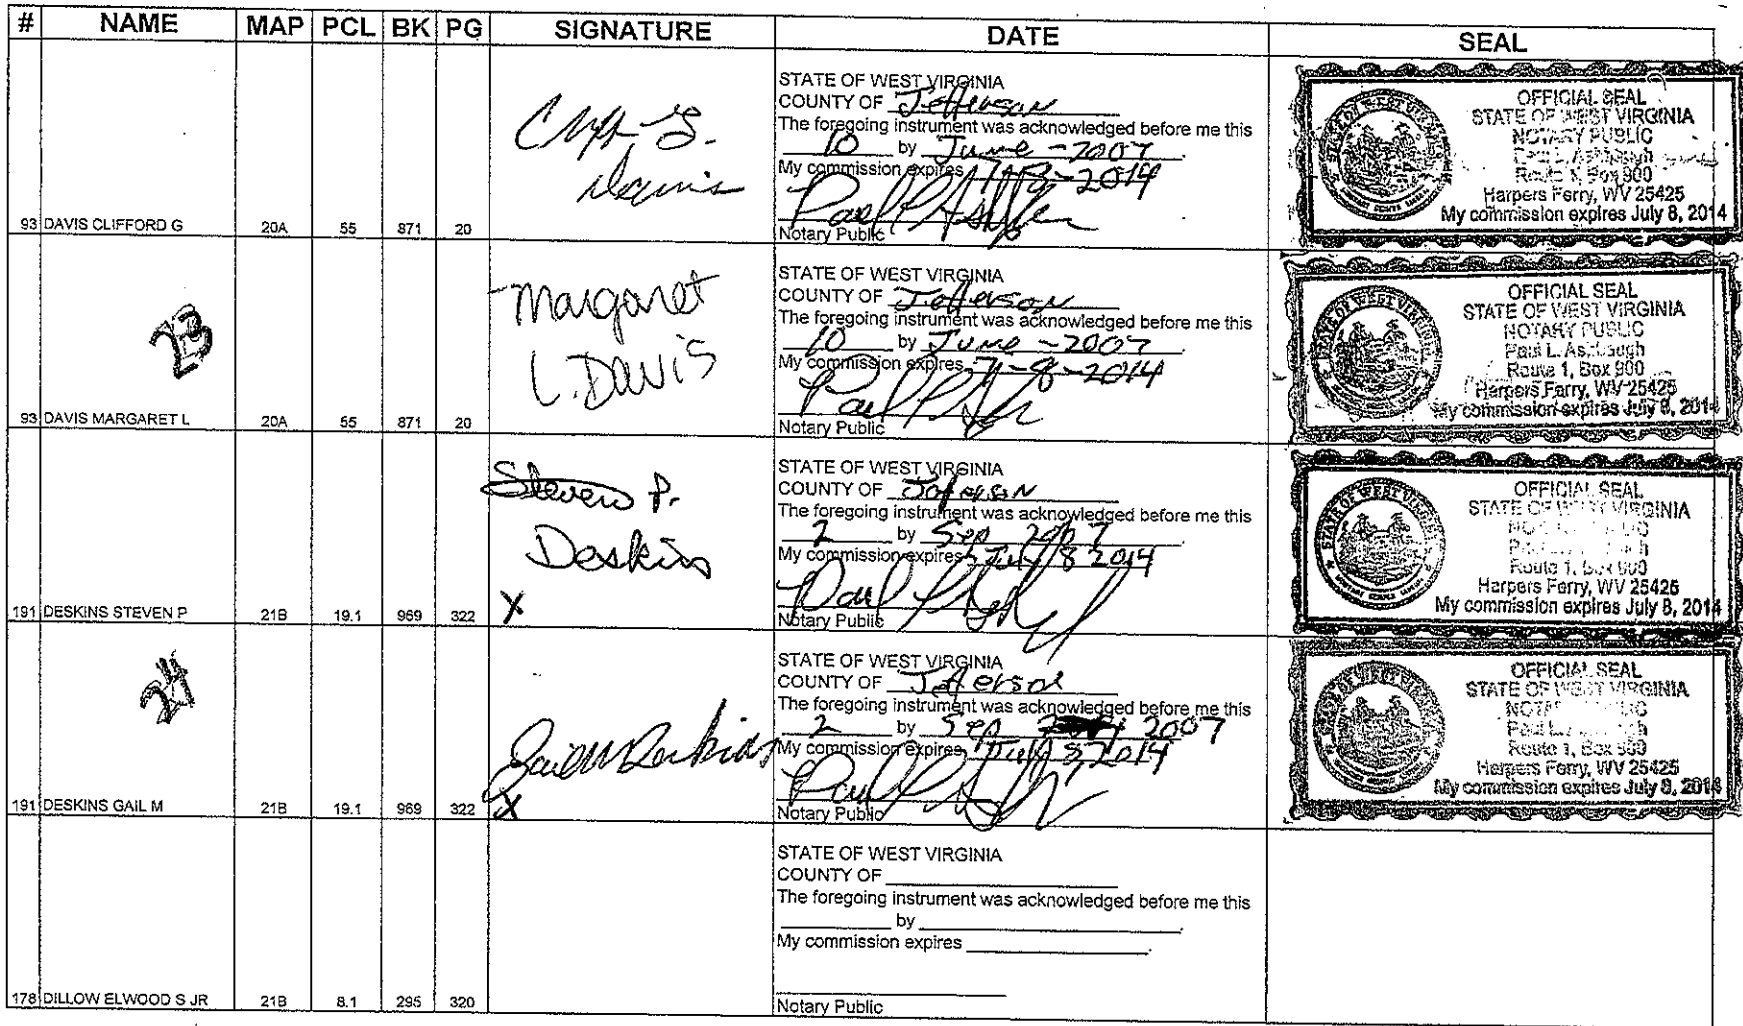 # NAME MAP PCL BK PG SIGNATURE DATE SEAL
93 DAVIS CLIFFORD G 20A 55 871 20
Cliff G.
Davis
STATE OF WEST VIRGINIA
COUNTY OF Jefferson
The foregoing instrument was acknowledged before me this
10 by June - 2007
My commission expires 7-8-2014
Notary Public
OFFICIAL SEAL
STATE OF WEST VIRGINIA
NOTARY PUBLIC
Paul L. Ashbaugh
Route 1, Box 900
Harpers Ferry, WV 25425
My commission expires July 8, 2014
23
93 DAVIS MARGARET L 20A 55 871 20
Margaret
L. Davis
STATE OF WEST VIRGINIA
COUNTY OF Jefferson
The foregoing instrument was acknowledged before me this
10 by June - 2007
My commission expires 7-8-2014
Notary Public
OFFICIAL SEAL
STATE OF WEST VIRGINIA
NOTARY PUBLIC
Paul L. Ashbaugh
Route 1, Box 900
Harpers Ferry, WV 25425
My commission expires July 8, 2014
191 DESKINS STEVEN P 21B 19.1 969 322
Steven P.
Deskins
X
STATE OF WEST VIRGINIA
COUNTY OF Jefferson
The foregoing instrument was acknowledged before me this
2 by Sep 2007
My commission expires July 8 2014
Notary Public
OFFICIAL SEAL
STATE OF WEST VIRGINIA
Route 1, Box 900
Harpers Ferry, WV 25425
My commission expires July 8, 2014
24
191 DESKINS GAIL M 21B 19.1 969 322
Gail M Deskins
X
STATE OF WEST VIRGINIA
COUNTY OF Jefferson
The foregoing instrument was acknowledged before me this
2 by Sep 2007
My commission expires July 8 2014
Notary Public
OFFICIAL SEAL
STATE OF WEST VIRGINIA
Route 1, Box 900
Harpers Ferry, WV 25425
My commission expires July 8, 2014
178 DILLOW ELWOOD S JR 21B 8.1 295 320
STATE OF WEST VIRGINIA
COUNTY OF
The foregoing instrument was acknowledged before me this
by
My commission expires
Notary Public